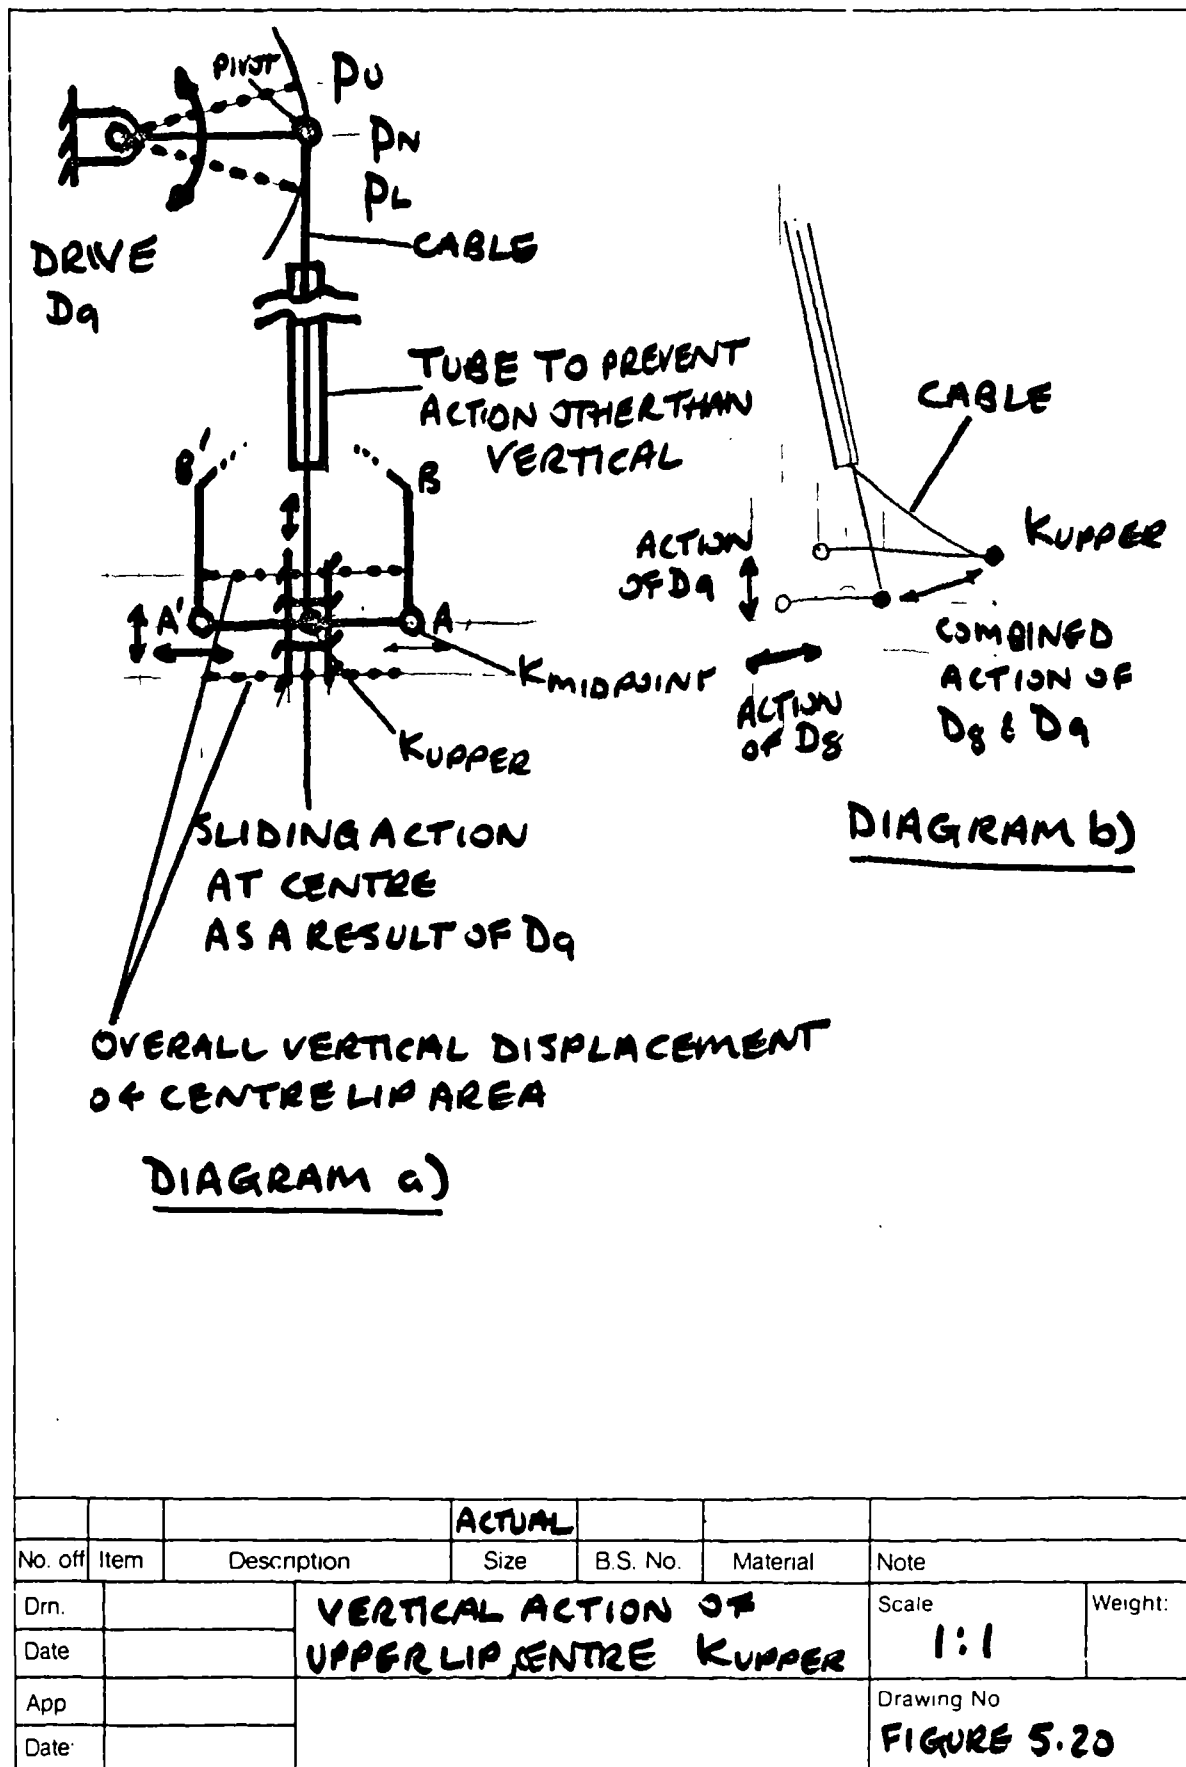 PIVOT
PU
PN
PL
CABLE
DRIVE
D9
TUBE TO PREVENT
ACTION OTHER THAN
VERTICAL
B'
B
A'
A
KMIDPOINT
KUPPER
SLIDING ACTION
AT CENTRE
AS A RESULT OF D9
OVERALL VERTICAL DISPLACEMENT
OF CENTRE LIP AREA
DIAGRAM a)
CABLE
KUPPER
ACTION
OF D9
ACTION
OF D8
COMBINED
ACTION OF
D8 & D9
DIAGRAM b)
ACTUAL
No. off Item Description Size B.S. No. Material Note
Drn.
Date
VERTICAL ACTION OF
UPPER LIP CENTRE KUPPER
Scale
1:1
Weight:
App
Date
Drawing No
FIGURE 5.20